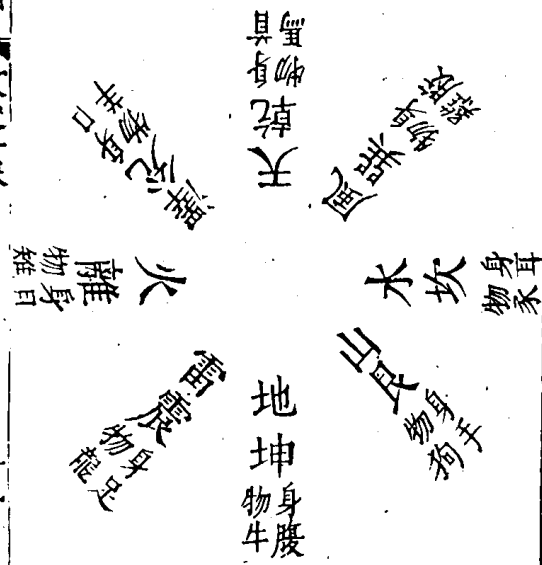 天乾
身首
物馬
風巽
身股
物雞
水坎
身耳
物豕
山艮
身手
物狗
地坤
身腹
物牛
雷震
身足
物龍
火離
身目
物雉
澤兌
身口
物羊